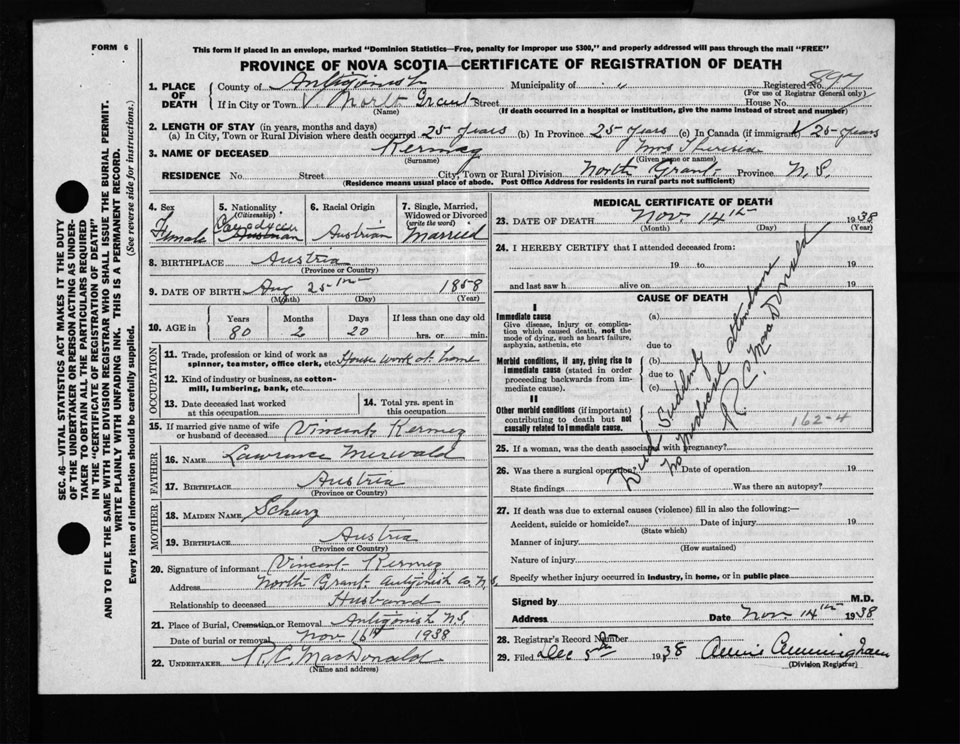 FORM 6
This form if placed in an envelope, marked "Dominion Statistics—Free, penalty for improper use $300," and properly addressed will pass through the mail "FREE"
PROVINCE OF NOVA SCOTIA—CERTIFICATE OF REGISTRATION OF DEATH
SEC. 46—VITAL STATISTICS ACT MAKES IT THE DUTY
OF THE UNDERTAKER OR PERSON ACTING AS UNDER-
TAKER TO OBTAIN ALL THE PARTICULARS REQUIRED
IN THE "CERTIFICATE OF REGISTRATION OF DEATH"
AND TO FILE THE SAME WITH THE DIVISION REGISTRAR WHO SHALL ISSUE THE BURIAL PERMIT.
WRITE PLAINLY WITH UNFADING INK. THIS IS A PERMANENT RECORD.
Every item of information should be carefully supplied. (See reverse side for instructions.)
1. PLACE OF DEATH
County of Antigonish Municipality of " Registered No. 897
(For use of Registrar General only)
If in City or Town North Grant Street House No.
(Name) (If death occurred in a hospital or institution, give the name instead of street and number)
2. LENGTH OF STAY (in years, months and days)
(a) In City, Town or Rural Division where death occurred 25 years (b) In Province 25 years (c) In Canada (if immigrant) 25 years
3. NAME OF DECEASED Kermez Mrs Theresia
(Surname) (Given name or names)
RESIDENCE No. Street City, Town or Rural Division North Grant Province N.S.
(Residence means usual place of abode. Post Office Address for residents in rural parts not sufficient)
4. Sex Female
5. Nationality (Citizenship) Canadian
6. Racial Origin Austrian
7. Single, Married, Widowed or Divorced (write the word) Married
8. BIRTHPLACE Austria
(Province or Country)
9. DATE OF BIRTH Aug 25th 1858
(Month) (Day) (Year)
10. AGE in Years 80 Months 2 Days 20 If less than one day old hrs. or min.
OCCUPATION
11. Trade, profession or kind of work as spinner, teamster, office clerk, etc. House work at home
12. Kind of industry or business, as cotton-mill, lumbering, bank, etc.
13. Date deceased last worked at this occupation
14. Total yrs. spent in this occupation
15. If married give name of wife or husband of deceased Vincent Kermez
FATHER
16. NAME Lawrence Merwald
17. BIRTHPLACE Austria
(Province or Country)
MOTHER
18. MAIDEN NAME Schurz
19. BIRTHPLACE Austria
(Province or Country)
20. Signature of informant Vincent Kermez
Address North Grant Antigonish Co. N.S.
Relationship to deceased Husband
21. Place of Burial, Cremation or Removal Antigonish N.S.
Date of burial or removal Nov 16th 1938
22. UNDERTAKER R. C. MacDonald
(Name and address)
MEDICAL CERTIFICATE OF DEATH
23. DATE OF DEATH Nov 14th 1938
(Month) (Day) (Year)
24. I HEREBY CERTIFY that I attended deceased from:
19 to 19
and last saw h alive on 19
CAUSE OF DEATH
I
Immediate cause
Give disease, injury or complication which caused death, not the mode of dying, such as heart failure, asphyxia, asthenia, etc
(a)
due to
Morbid conditions, if any, giving rise to immediate cause (stated in order proceeding backwards from immediate cause).
(b)
due to
(c)
II
Other morbid conditions (if important) contributing to death but not causally related to immediate cause.
Died Suddenly
No Medical attendance
R. C. MacDonald
162-4
25. If a woman, was the death associated with pregnancy?
26. Was there a surgical operation? Date of operation 19
State findings Was there an autopsy?
27. If death was due to external causes (violence) fill in also the following:—
Accident, suicide or homicide? Date of injury 19
(State which)
Manner of injury
(How sustained)
Nature of injury
Specify whether injury occurred in industry, in home, or in public place
Signed by M.D.
Address Date Nov 14th 1938
28. Registrar's Record Number
29. Filed Dec 5th 1938 Cunningham
(Division Registrar)